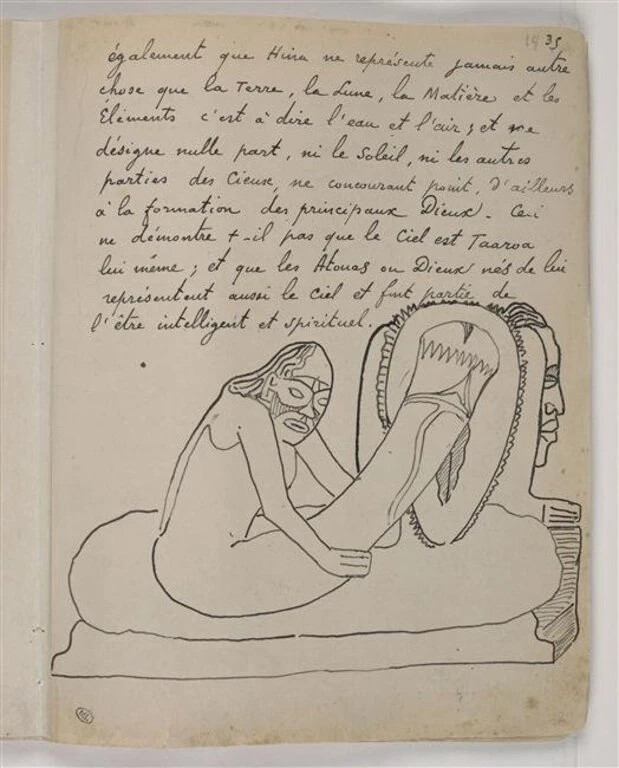 35
également que Hina ne représente jamais autre
chose que la Terre, la Lune, la Matière et les
Eléments c'est à dire l'eau et l'air; et ne
désigne nulle part, ni le Soleil, ni les autres
parties des Cieux, ne concourant point, d'ailleurs
à la formation des principaux Dieux. Ceci
ne démontre t-il pas que le Ciel est Taaroa
lui même; et que les Atouas ou Dieux nés de lui
représentent aussi le Ciel et font partie de
l'être intelligent et spirituel.